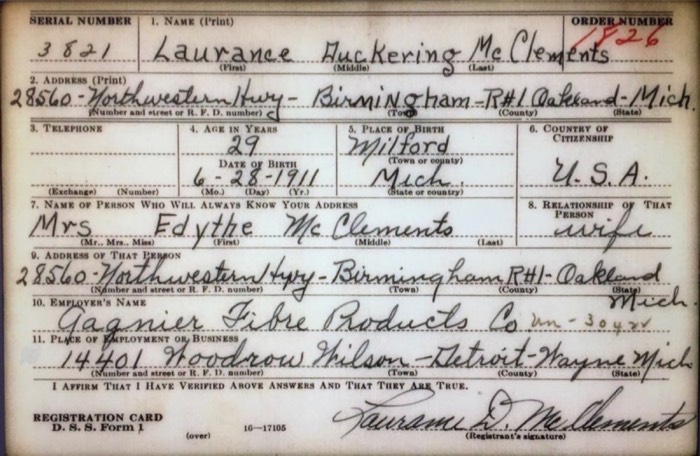 SERIAL NUMBER 1. NAME (Print) ORDER NUMBER
3821 Laurance Duckering McClements 1826
(First) (Middle) (Last)
2. ADDRESS (Print)
28560-Northwestern Hwy- Birmingham-R#1 Oakland-Mich.
(Number and street or R. F. D. number) (Town) (County) (State)
3. TELEPHONE 4. AGE IN YEARS 5. PLACE OF BIRTH 6. COUNTRY OF CITIZENSHIP
29 Milford
DATE OF BIRTH (Town or county)
6-28-1911 Mich. U.S.A.
(Exchange) (Number) (Mo.) (Day) (Yr.) (State or country)
7. NAME OF PERSON WHO WILL ALWAYS KNOW YOUR ADDRESS 8. RELATIONSHIP OF THAT PERSON
Mrs Edythe McClements wife
(Mr., Mrs., Miss) (First) (Middle) (Last)
9. ADDRESS OF THAT PERSON
28560-Northwestern Hwy-Birmingham R#1-Oakland Mich
(Number and street or R. F. D. number) (Town) (County) (State)
10. EMPLOYER'S NAME
Gagnier Fibre Products Co
11. PLACE OF EMPLOYMENT OR BUSINESS
14401 Woodrow Wilson-Detroit-Wayne Mich
(Number and street or R. F. D. number) (Town) (County) (State)
I AFFIRM THAT I HAVE VERIFIED ABOVE ANSWERS AND THAT THEY ARE TRUE.
REGISTRATION CARD
D. S. S. Form 1 (over) 16—17105
Laurance D. McClements
(Registrant's signature)